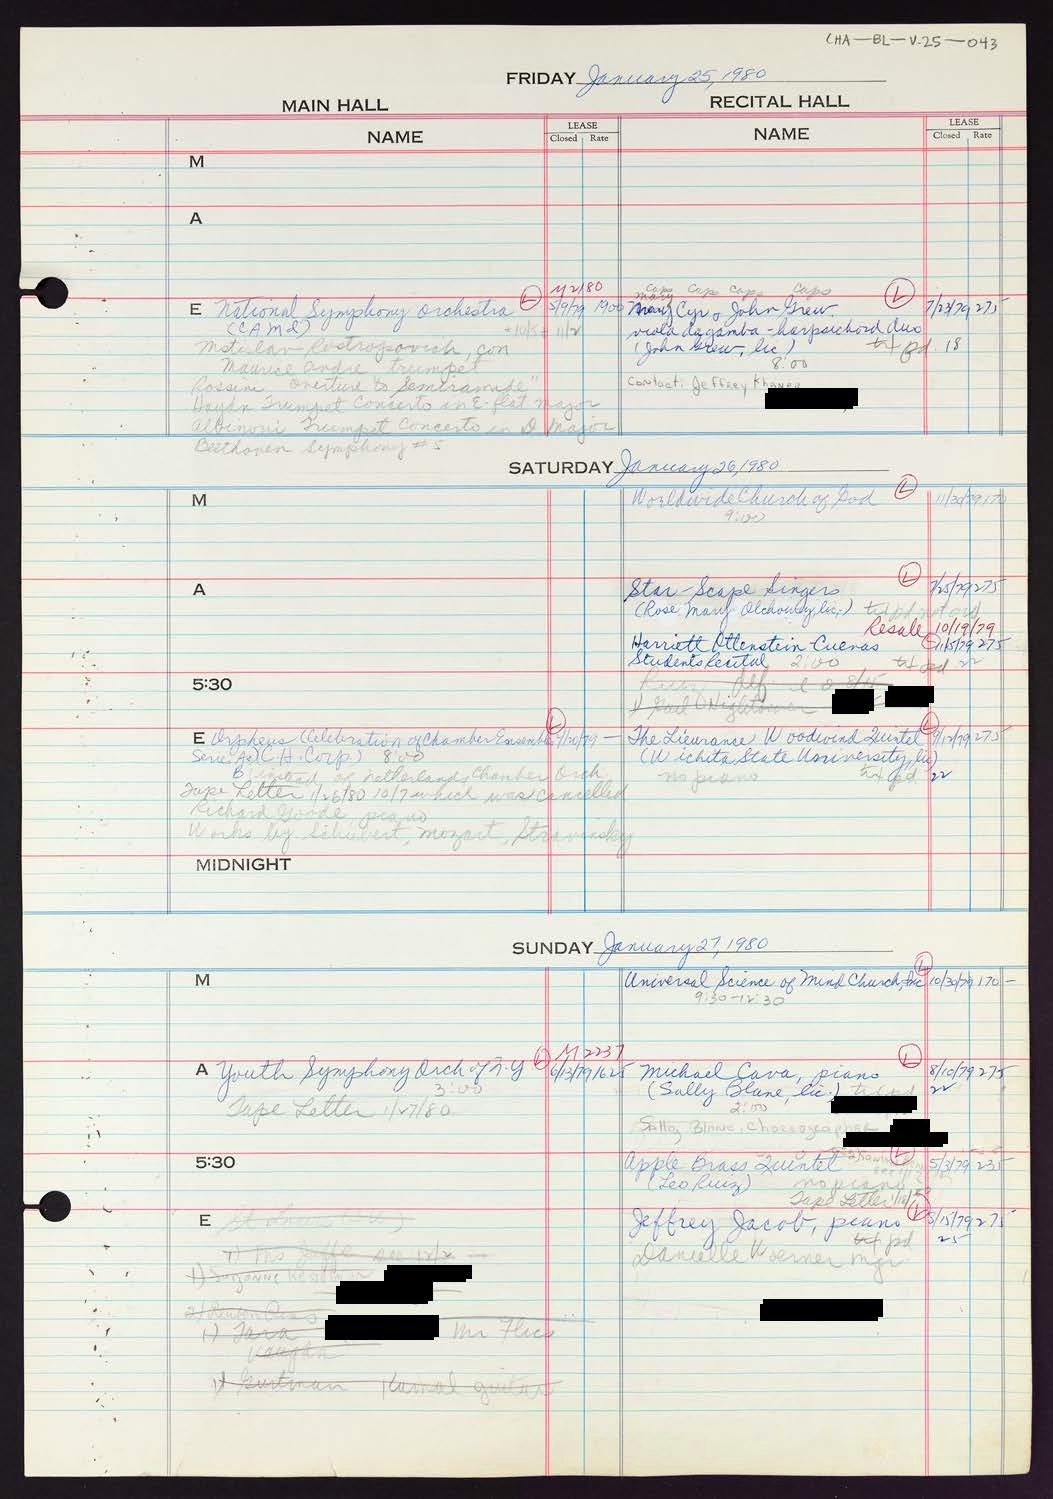 CHA-BL-V.25-043
FRIDAY January 25, 1980
MAIN HALL
RECITAL HALL
NAME
LEASE
Closed Rate
NAME
LEASE
Closed Rate
M
A
M 2180
E National Symphony Orchestra L 5/9/79 1900
(CAMI) +10/5 + 11/2
Mstislav Rostropovich, con
Maurice Andre trumpet
Rossini Overture to Semiramide"
Haydn Trumpet Concerto in E-flat major
Albinoni Trumpet Concerto in D Major
Beethoven Symphony #5
caps caps caps caps
Mary Cyr, John Grew L 7/23/79 275
viola da gamba - harpsichord duo
(John Grew, lic.) txt pd. 18
8:00
Contact: Jeffrey
SATURDAY January 26, 1980
M
Worldwide Church of God L 11/30/79 170
9:00
A
Star-Scape Singers L 7/25/79 275
(Rose Mary lic.)
Resale 10/19/79
Harriett Ottenstein-Cuevas 11/5/79 275
Students Recital 2:00 txt pd 22
5:30
1) Gail Hightower
E Orpheus (Celebration of Chamber Ensemble L
Series A) (C.H. Corp.) 8:00
instead of Netherlands Chamber Orch
Tape Letter 1/26/80 10/7 which was cancelled
Richard Goode, piano
Works by Schubert, Mozart, Stravinsky
The Lieurance Woodwind Quintet L 9/12/79 275
(Wichita State University, lic)
no piano txt pd 22
MIDNIGHT
SUNDAY January 27, 1980
M
Universal Science of Mind Church, Inc L 10/30/79 170 -
9:30-12:30
M 2237
A Youth Symphony Orch of N.Y L 6/13/79 1625
3:00
Tape Letter 1/27/80
Michael Cava, piano L 8/10/79 275
(Sally Blane, lic.) txt pd 22
2:00
Sally Blane, Choreographer
5:30
Apple Brass Quintet L 5/3/79 235
(Leo Ruiz) no piano
Tape Letter
E
1) Ms Jaffe see 12/2
1) Suzanne
1) Tara Mr Flics
Vaughn
1) Guttman Kamal guitar
Jeffrey Jacob, piano L 5/15/79 275
txt pd 25
Danielle Woerner mgr